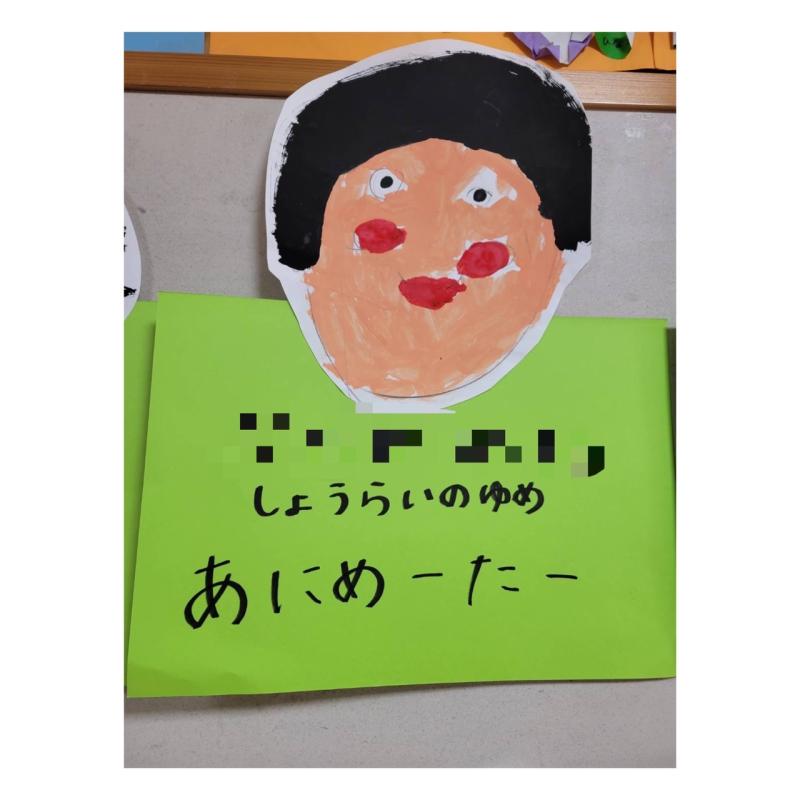 しょうらいのゆめ
あにめーたー